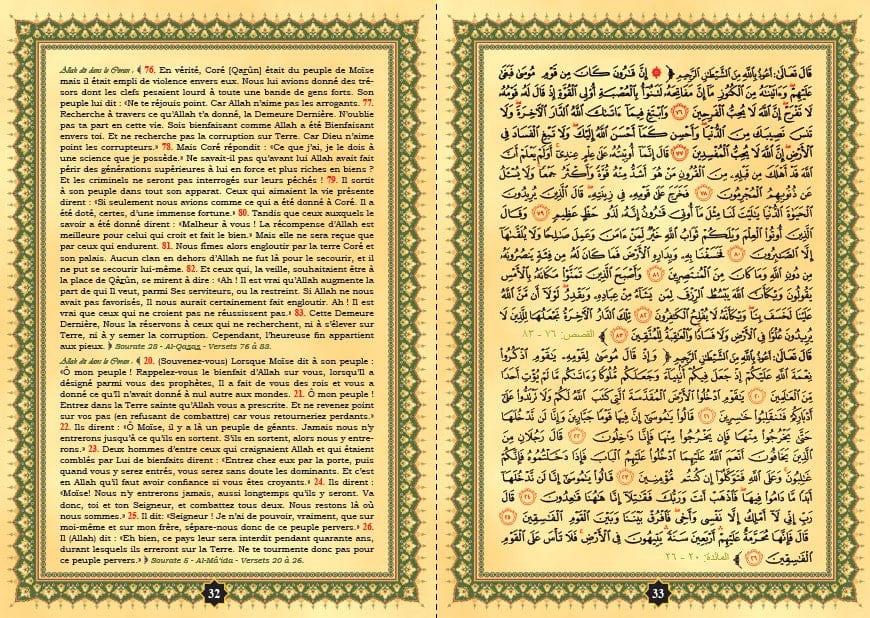 Allah dit dans le Coran : ﴾ 76. En vérité, Coré [Qarûn] était du peuple de Moïse
mais il était empli de violence envers eux. Nous lui avions donné des tré-
sors dont les clefs pesaient lourd à toute une bande de gens forts. Son
peuple lui dit : «Ne te réjouis point. Car Allah n'aime pas les arrogants. 77.
Recherche à travers ce qu'Allah t'a donné, la Demeure Dernière. N'oublie
pas ta part en cette vie. Sois bienfaisant comme Allah a été Bienfaisant
envers toi. Et ne recherche pas la corruption sur Terre. Car Dieu n'aime
point les corrupteurs.» 78. Mais Coré répondit : «Ce que j'ai, je le dois à
une science que je possède.» Ne savait-il pas qu'avant lui Allah avait fait
périr des générations supérieures à lui en force et plus riches en biens ?
Et les criminels ne seront pas interrogés sur leurs péchés ! 79. Il sortit
à son peuple dans tout son apparat. Ceux qui aimaient la vie présente
dirent : «Si seulement nous avions comme ce qui a été donné à Coré. Il a
été doté, certes, d'une immense fortune.» 80. Tandis que ceux auxquels le
savoir a été donné dirent : «Malheur à vous ! La récompense d'Allah est
meilleure pour celui qui croit et fait le bien.» Mais elle ne sera reçue que
par ceux qui endurent. 81. Nous fîmes alors engloutir par la terre Coré et
son palais. Aucun clan en dehors d'Allah ne fut là pour le secourir, et il
ne put se secourir lui-même. 82. Et ceux qui, la veille, souhaitaient être à
la place de Qârûn, se mirent à dire : «Ah ! Il est vrai qu'Allah augmente la
part de qui Il veut, parmi Ses serviteurs, ou la restreint. Si Allah ne nous
avait pas favorisés, Il nous aurait certainement fait engloutir. Ah ! Il est
vrai que ceux qui ne croient pas ne réussissent pas.» 83. Cette Demeure
Dernière, Nous la réservons à ceux qui ne recherchent, ni à s'élever sur
Terre, ni à y semer la corruption. Cependant, l'heureuse fin appartient
aux pieux. ﴿ Sourate 28 - Al-Qaṣaṣ - Versets 76 à 83.
Allah dit dans le Coran : ﴾ 20. (Souvenez-vous) Lorsque Moïse dit à son peuple :
«Ô mon peuple ! Rappelez-vous le bienfait d'Allah sur vous, lorsqu'Il a
désigné parmi vous des prophètes, Il a fait de vous des rois et vous a
donné ce qu'Il n'avait donné à nul autre aux mondes. 21. Ô mon peuple !
Entrez dans la Terre sainte qu'Allah vous a prescrite. Et ne revenez point
sur vos pas (en refusant de combattre) car vous retourneriez perdants.»
22. Ils dirent : «Ô Moïse, il y a là un peuple de géants. Jamais nous n'y
entrerons jusqu'à ce qu'ils en sortent. S'ils en sortent, alors nous y entre-
rons.» 23. Deux hommes d'entre ceux qui craignaient Allah et qui étaient
comblés par Lui de bienfaits dirent : «Entrez chez eux par la porte, puis
quand vous y serez entrés, vous serez sans doute les dominants. Et c'est
en Allah qu'il faut avoir confiance si vous êtes croyants.» 24. Ils dirent :
«Moïse! Nous n'y entrerons jamais, aussi longtemps qu'ils y seront. Va
donc, toi et ton Seigneur, et combattez tous deux. Nous restons là où
nous sommes.» 25. Il dit: «Seigneur ! Je n'ai de pouvoir, vraiment, que sur
moi-même et sur mon frère, sépare-nous donc de ce peuple pervers.» 26.
Il (Allah) dit : «Eh bien, ce pays leur sera interdit pendant quarante ans,
durant lesquels ils erreront sur la Terre. Ne te tourmente donc pas pour
ce peuple pervers.» ﴿ Sourate 5 - Al-Mâ'ida - Versets 20 à 26.
32
قال تعالى: أعوذ بالله من الشيطان الرجيم ﴿ إن قارون كان من قوم موسى فبغى
عليهم وءاتيناه من الكنوز ما إن مفاتحه لتنوأ بالعصبة أولي القوة إذ قال له قومه
لا تفرح إن الله لا يحب الفرحين ٧٦ وابتغ فيما ءاتاك الله الدار الآخرة ولا
تنس نصيبك من الدنيا وأحسن كما أحسن الله إليك ولا تبغ الفساد في
الأرض إن الله لا يحب المفسدين ٧٧ قال إنما أوتيته على علم عندي أولم يعلم أن
الله قد أهلك من قبله من القرون من هو أشد منه قوة وأكثر جمعا ولا يسئل
عن ذنوبهم المجرمون ٧٨ فخرج على قومه في زينته قال الذين يريدون
الحياة الدنيا يا ليت لنا مثل ما أوتي قارون إنه لذو حظ عظيم ٧٩ وقال
الذين أوتوا العلم ويلكم ثواب الله خير لمن ءامن وعمل صالحا ولا يلقاها
إلا الصابرون ٨٠ فخسفنا به وبداره الأرض فما كان له من فئة ينصرونه
من دون الله وما كان من المنتصرين ٨١ وأصبح الذين تمنوا مكانه بالأمس
يقولون ويكأن الله يبسط الرزق لمن يشاء من عباده ويقدر لولا أن من الله
علينا لخسف بنا ويكأنه لا يفلح الكافرون ٨٢ تلك الدار الآخرة نجعلها للذين لا
يريدون علوا في الأرض ولا فسادا والعاقبة للمتقين ٨٣ ﴾ القصص: ٧٦ - ٨٣
قال تعالى: أعوذ بالله من الشيطان الرجيم ﴿ وإذ قال موسى لقومه يا قوم اذكروا
نعمة الله عليكم إذ جعل فيكم أنبياء وجعلكم ملوكا وءاتاكم ما لم يؤت أحدا
من العالمين ٢٠ يا قوم ادخلوا الأرض المقدسة التي كتب الله لكم ولا ترتدوا على
أدباركم فتنقلبوا خاسرين ٢١ قالوا يا موسى إن فيها قوما جبارين وإنا لن ندخلها
حتى يخرجوا منها فإن يخرجوا منها فإنا داخلون ٢٢ قال رجلان من
الذين يخافون أنعم الله عليهما ادخلوا عليهم الباب فإذا دخلتموه فإنكم
غالبون وعلى الله فتوكلوا إن كنتم مؤمنين ٢٣ قالوا يا موسى إنا لن ندخلها
أبدا ما داموا فيها فاذهب أنت وربك فقاتلا إنا هاهنا قاعدون ٢٤ قال
رب إني لا أملك إلا نفسي وأخي فافرق بيننا وبين القوم الفاسقين ٢٥
قال فإنها محرمة عليهم أربعين سنة يتيهون في الأرض فلا تأس على القوم
الفاسقين ٢٦ ﴾ المائدة: ٢٠ - ٢٦
33